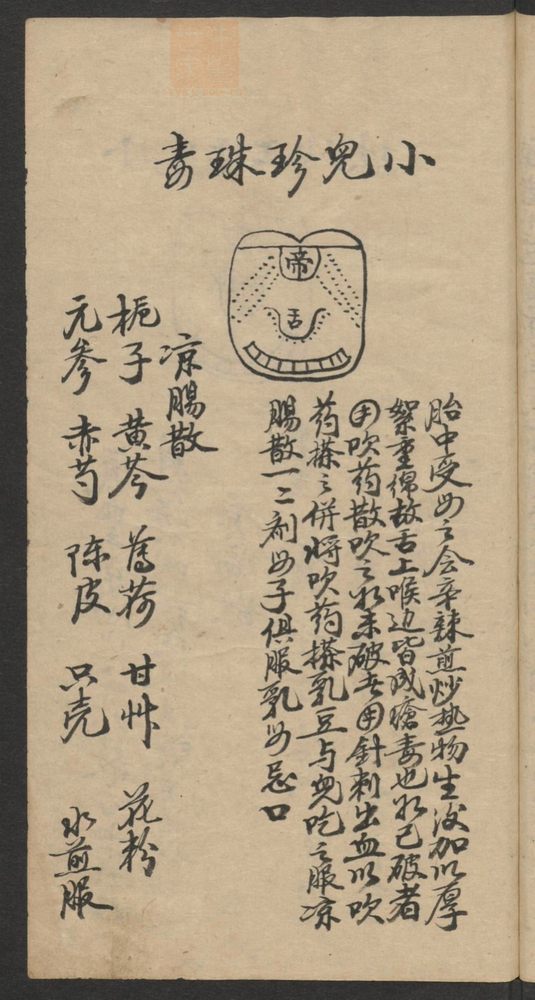 小兒珍珠毒
帝
舌
胎中受母之会辛辣煎炒热物生後加以厚
絮重绵故舌上喉边皆成瘡毒也如已破者
用吹药散吹之如未破者用針刺出血以吹
药搽之併将吹药搽乳豆与兒吃之服凉
腸散一二剂母子俱服乳母忌口
凉腸散
栀子 黄芩 薄荷 甘艸 花粉
元参 赤芍 陈皮 只壳 水煎服